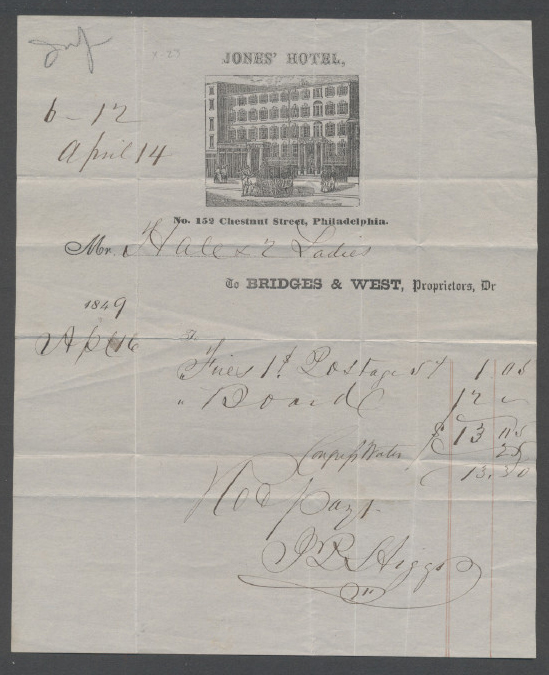 JONES' HOTEL,
6 - 12
April 14
No. 152 Chestnut Street, Philadelphia.
Mr. Hale & 2 Ladies
To BRIDGES & WEST, Proprietors, Dr
1849
Apl 16
To
" Fires 1$ Postage 5¢ 1 05
" Board 12 "
$ 13 05
Congress Water 25
13.30
Rec payt
Higgs